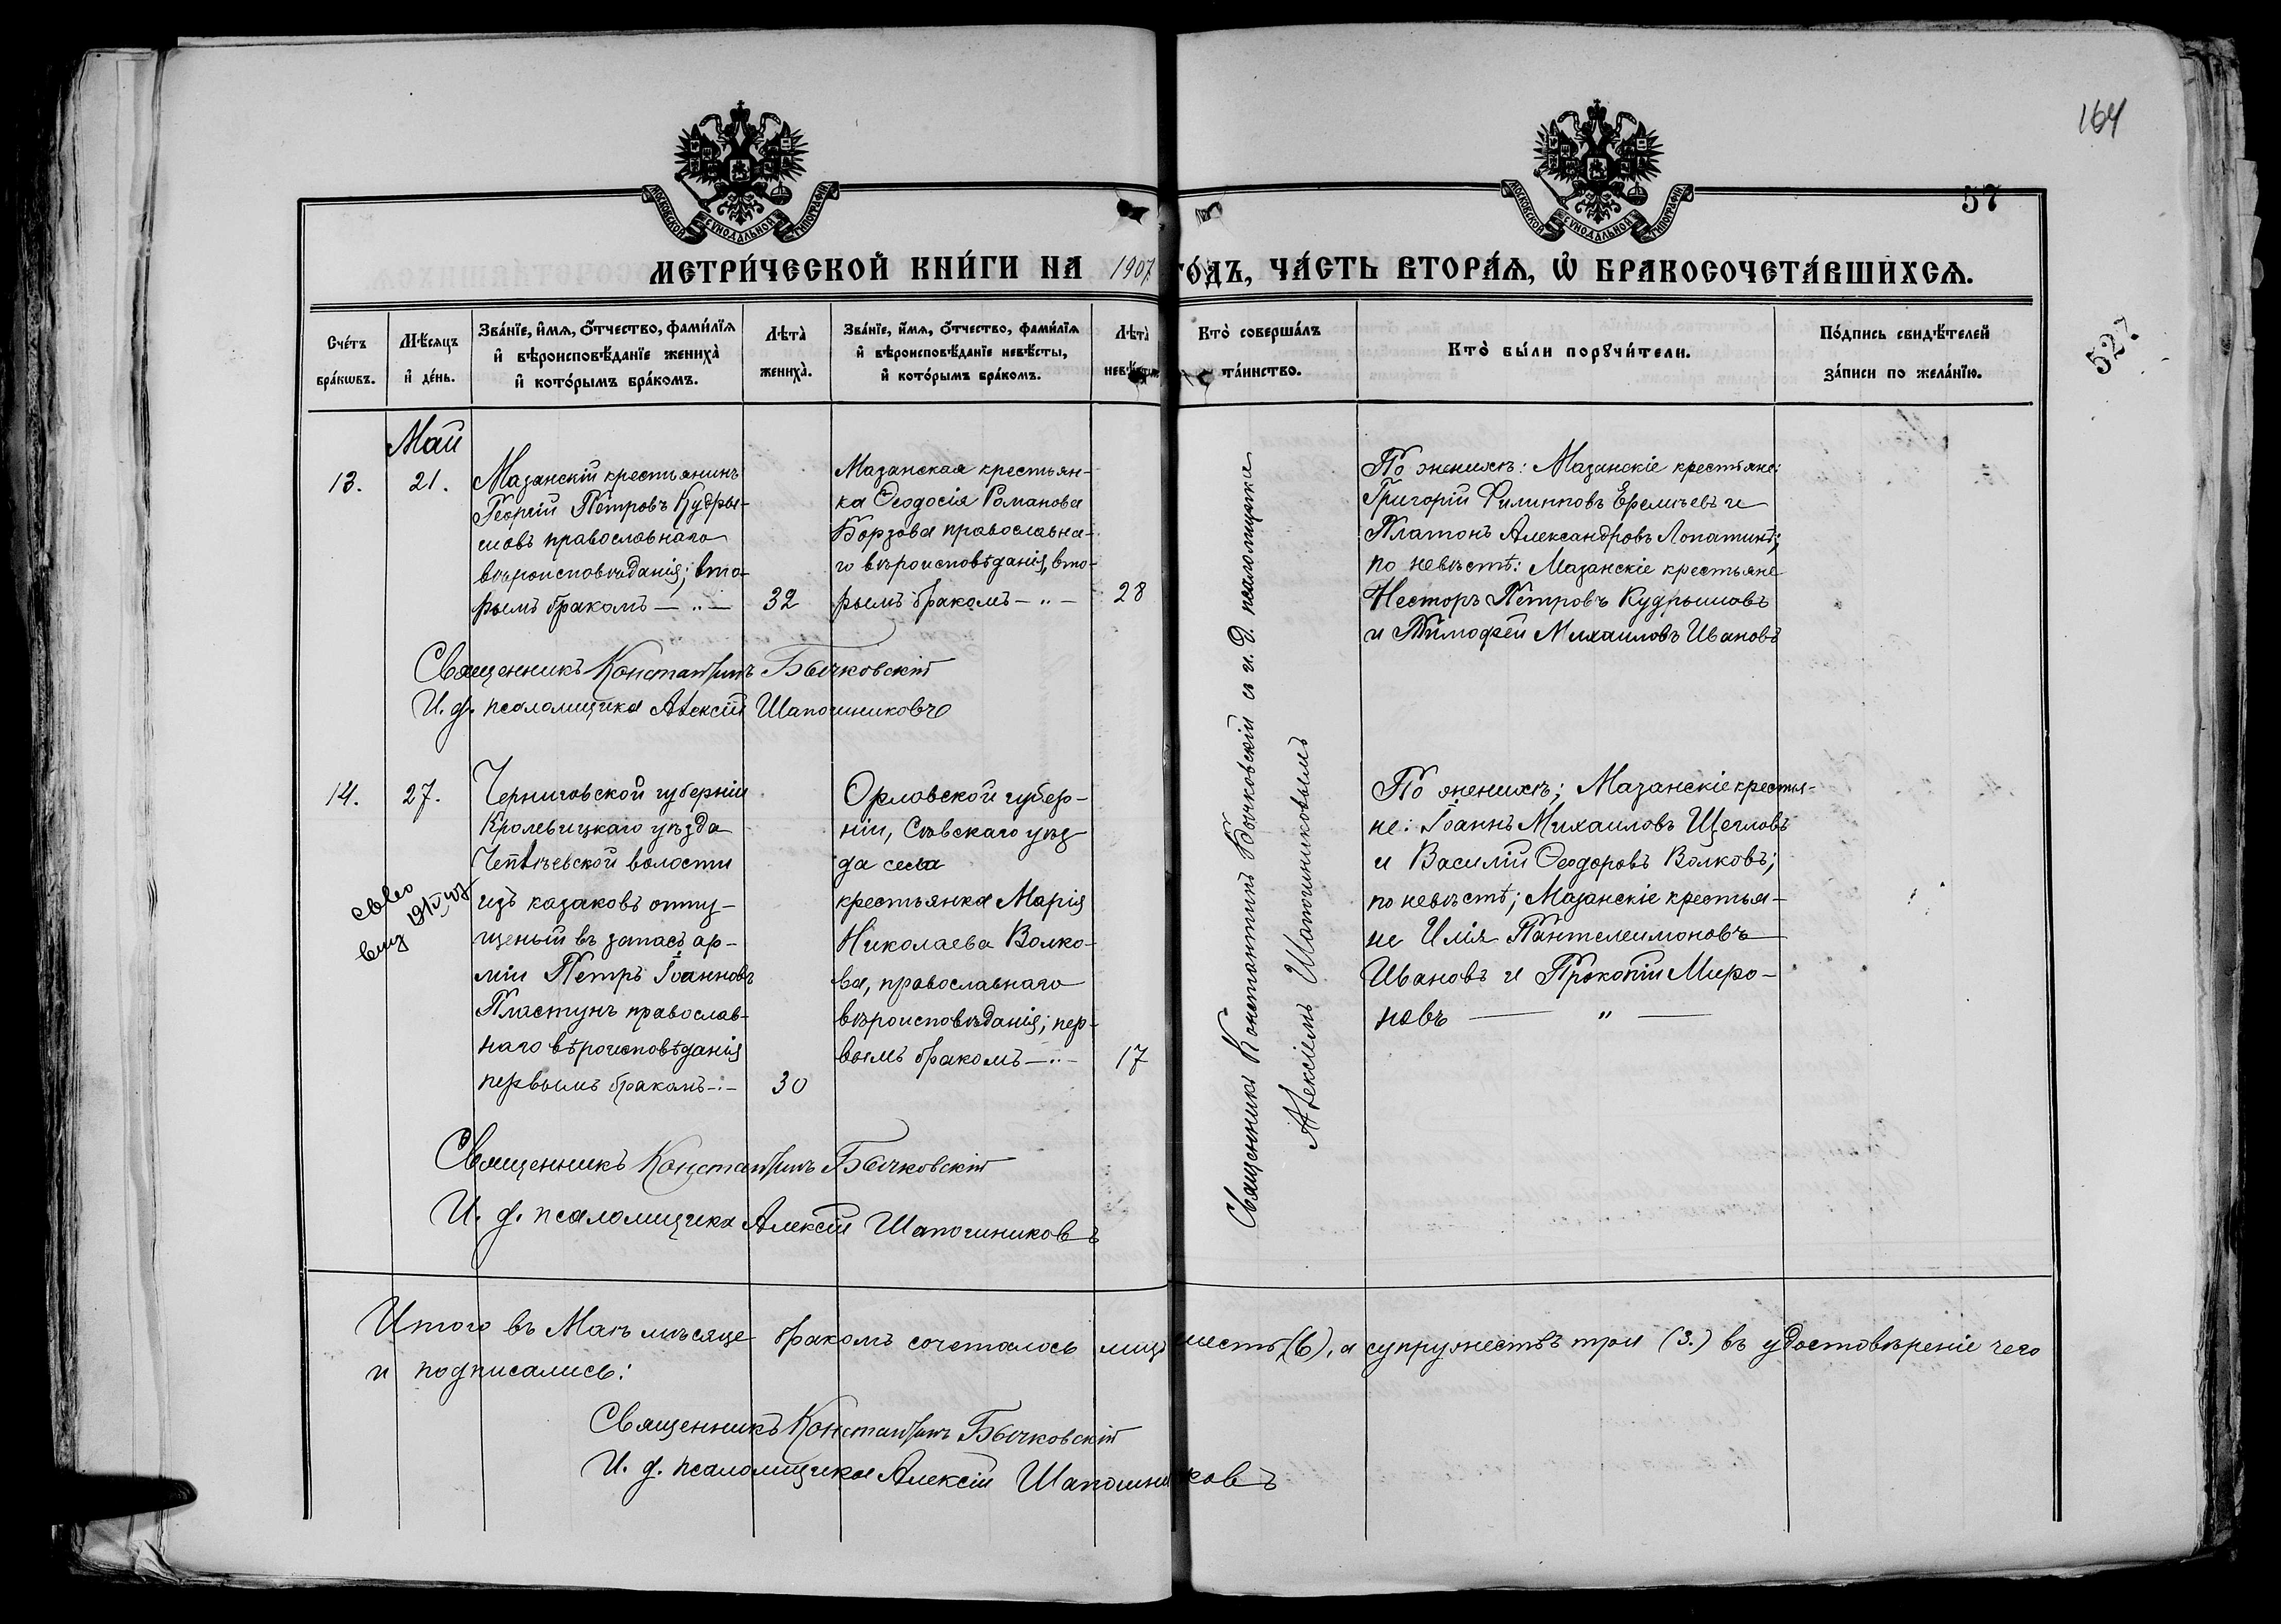 164
57
527
МОСКОВСКОЙ СѴНОДАЛЬНОЙ ТИПОГРАФІИ
МОСКОВСКОЙ СѴНОДАЛЬНОЙ ТИПОГРАФІИ
МЕТРИ́ЧЕСКОЙ КНИ́ГИ НА 1907 ГО́ДЪ, ЧА́СТЬ ВТОРА́Ѧ, Ѡ҆ БРАКОСОЧЕТА́ВШИХСѦ.
Счётъ
бра́кѡвъ.
Мѣ́сяцъ
и҆ де́нь.
Зва́нїе, и҆́мѧ, ѻ҆́тчество, фами́лїѧ
и҆ вѣроисповѣ́данїе жениха̀
и҆ кото́рымъ бра́комъ.
Лѣта̀
жениха̀.
Зва́нїе, и҆́мѧ, ѻ҆́тчество, фами́лїѧ
и҆ вѣроисповѣ́данїе невѣ́сты,
и҆ кото́рымъ бра́комъ.
Лѣта̀
невѣ́сты
Кто̀ соверша́лъ
та́инство.
Кто̀ бы́ли порꙋчи́тели.
По́дпись свидѣ́телей
за́писи по жела́нїю.
Май
13.
21.
Мазанскій крестьянинъ
Георгій Петровъ Кудры-
шовъ православнаго
вѣроисповѣданія; вто-
рымъ бракомъ — „ —
32
Мазанская крестьян-
ка Ѳеодосія Романова
Борзова православна-
го вѣроисповѣданія, вто-
рымъ бракомъ — „ —
28
Священникъ Константинъ Бычковскій
И. д. псаломщика Алексій Шапошниковъ
По женихѣ: Мазанскіе крестьяне:
Григорій Филипповъ Еремѣевъ и
Платонъ Александровъ Лопатинъ;
по невѣстѣ: Мазанскіе крестьяне
Несторъ Петровъ Кудрышовъ
и Тимофей Михаиловъ Ивановъ
Священникъ Константинъ Бычковскій и и. д. псаломщика
Алексіемъ Шапошниковымъ
14.
27.
Черниговской губерніи
Кролевецкаго уѣзда
волости
изъ казаковъ отпу-
щеный въ запасъ ар-
міи Петръ Іоанновъ
Пластунъ православ-
наго вѣроисповѣданія
первымъ бракомъ -.-
30
Орловской губер-
ніи, Сѣвскаго уѣз-
да села
крестьянка Марія
Николаева Волко-
ва, православнаго
вѣроисповѣданія; пер-
вымъ бракомъ — „ -
17
Священникъ Константинъ Бычковскій
И. д. псаломщика Алексій Шапошниковъ
По женихѣ; Мазанскіе крестья-
не: Іоаннъ Михаиловъ Щегловъ
и Василій Ѳеодоровъ Волковъ;
по невѣстѣ; Мазанскіе крестья-
не Илія Пантелеимоновъ
Ивановъ и Прокопій Миро-
новъ — „ —
Итого въ Маѣ мѣсяце бракомъ сочеталось лицъ шесть (6), а супружествъ три (3.) въ удостовѣреніе чего
и подписались:
Священникъ Константинъ Бычковскій
И. д. псаломщика Алексій Шапошниковъ